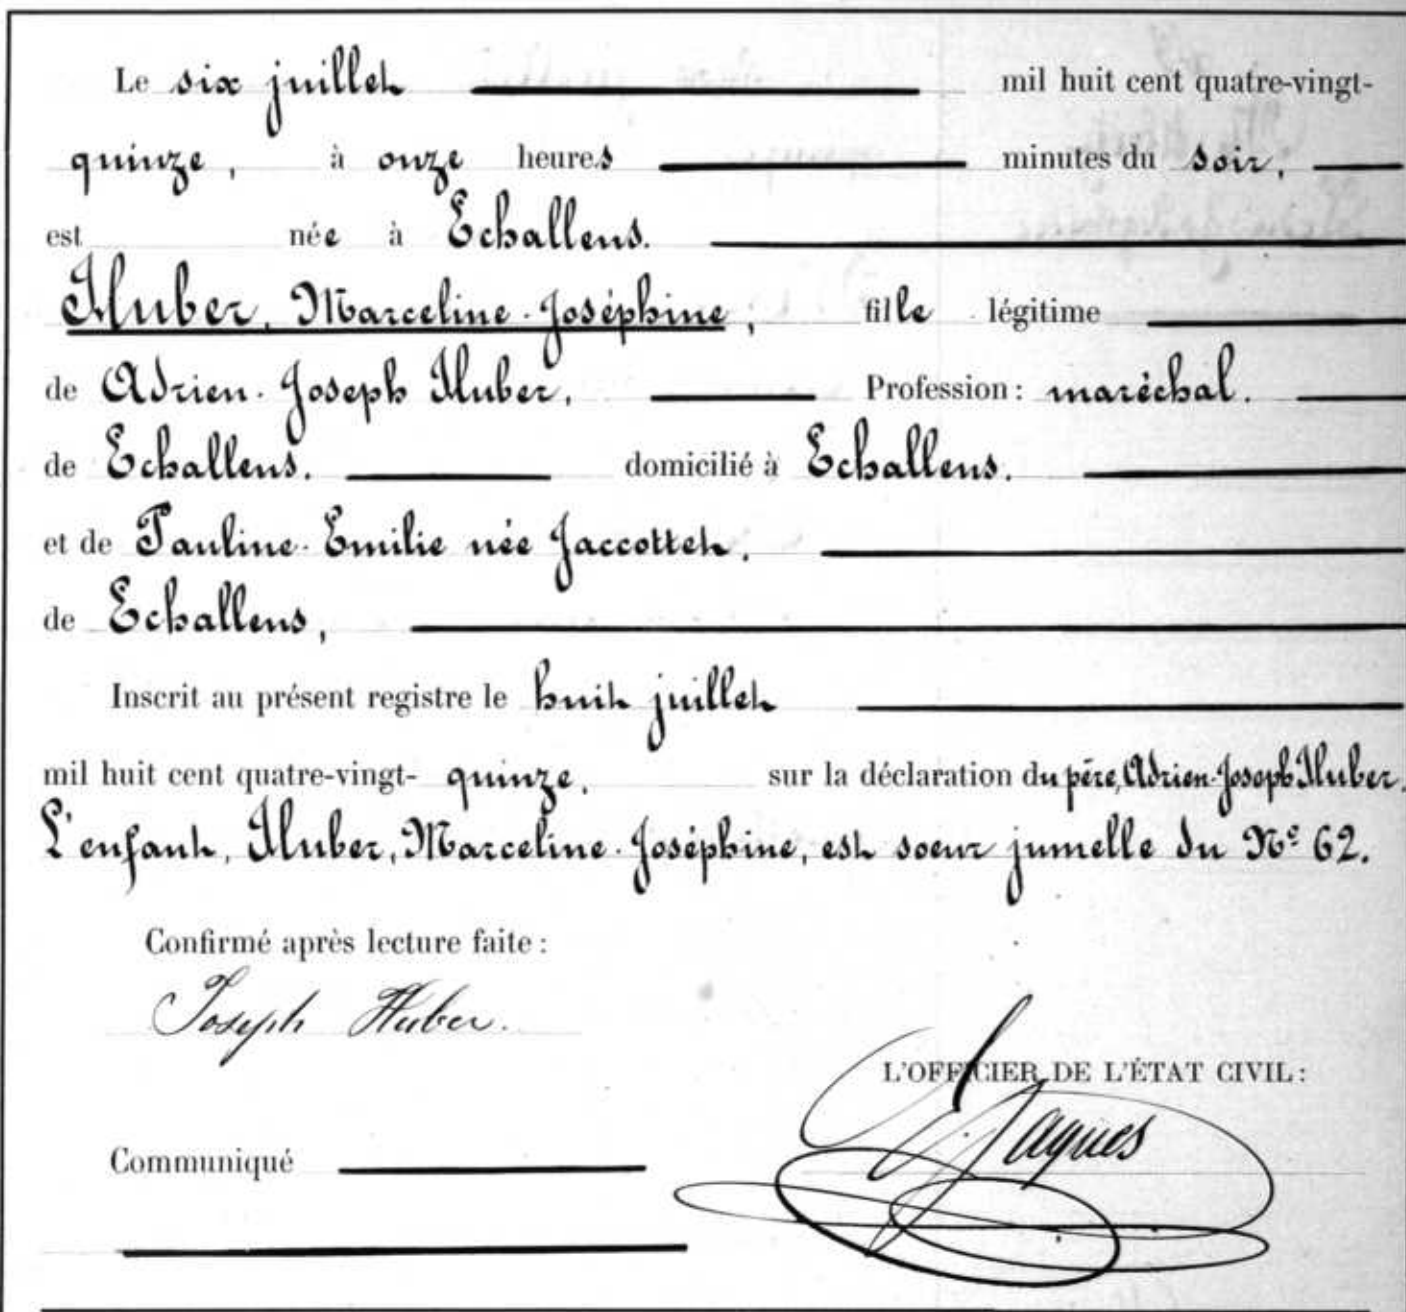 Le six juillet mil huit cent quatre-vingt-
quinze, à onze heures minutes du soir,
est née à Echallens.
Huber, Marceline-Joséphine, fille légitime
de Adrien-Joseph Huber. Profession: maréchal.
de Echallens. domicilié à Echallens.
et de Pauline-Emilie née Jaccottet.
de Echallens,
Inscrit au présent registre le huit juillet
mil huit cent quatre-vingt-quinze. sur la déclaration du père, Adrien-Joseph Huber.
L'enfant, Huber, Marceline-Joséphine, est soeur jumelle du Nº 62.
Confirmé après lecture faite:
Joseph Huber.
L'OFFICIER DE L'ÉTAT CIVIL:
Jaques
Communiqué